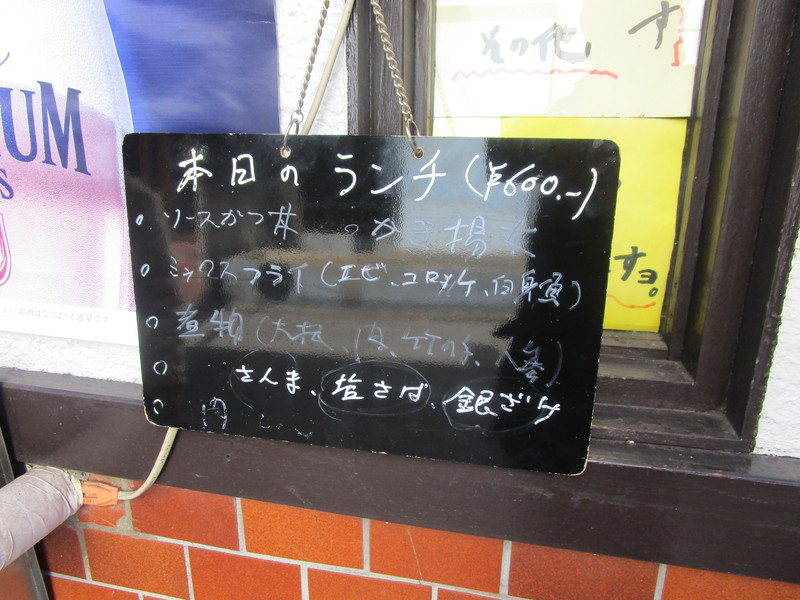 UM
S
その代、
す
すヨ。
本日のランチ(¥600.-)
○ ソースかつ丼 ○ かき揚丼
○ ミックスフライ(エビ、コロッケ、白身魚)
○ 煮物(大根、肉、竹の子、人参)
○ さんま、塩さば、銀ざけ
○